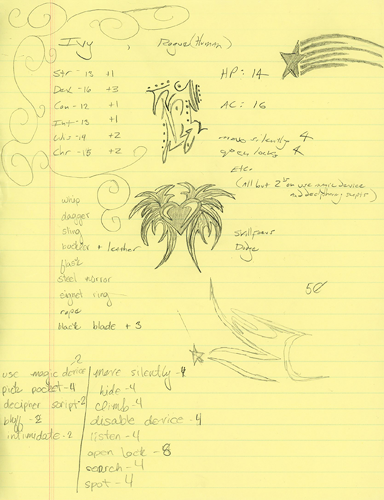 Ivy, Rogue (Human)
Str - 13 +1
Dex - 16 +3
Con - 12 +1
Int - 13 +1
Wis - 14 +2
Chr - 15 +2
HP: 14
AC: 16
move silently 4
open locks 4
Etc.
(all but 2
use magic device
and deciphering script)
whip
dagger
sling
buckler + leather
flask
steel mirror
signet ring
rope
black blade +3
Dodge
50
use magic device 2
pick pocket - 4
decipher script - 2
bluff - 2
intimidate - 2
move silently - 4
hide - 4
climb - 4
disable device - 4
listen - 4
open lock - 8
search - 4
spot - 4